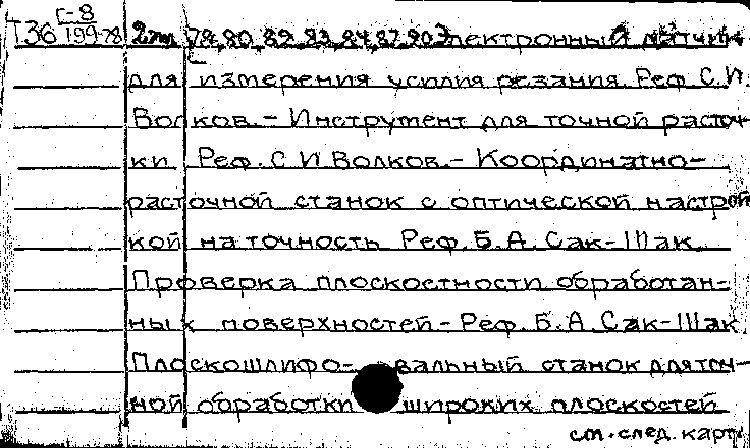 Г-8
Т36 199-78 2т. 78, 80, 82, 83, 84, 87, 90 Электронный датчик
для измерения усилия резания. Реф. С. И.
Волков. - Инструмент для точной расточ-
ки Реф. С. И Волков. - Координатно-
расточной станок с оптической настрой
кой на точность Реф. Б. А. Сак-Шак.
Проверка плоскостности обработан-
ных поверхностей - Реф. Б. А Сак-Шак.
Плоскошлифо-вальный станок для точ-
ной обработки широких плоскостей
см. след. карт.